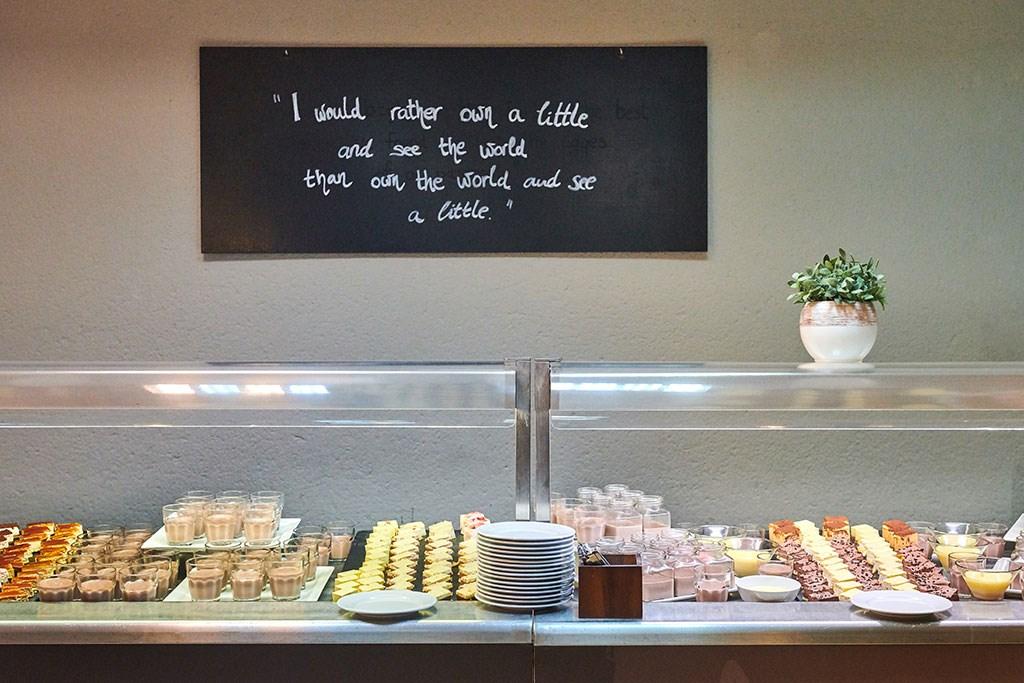 "I would rather own a little
and see the world
than own the world and see
a little."